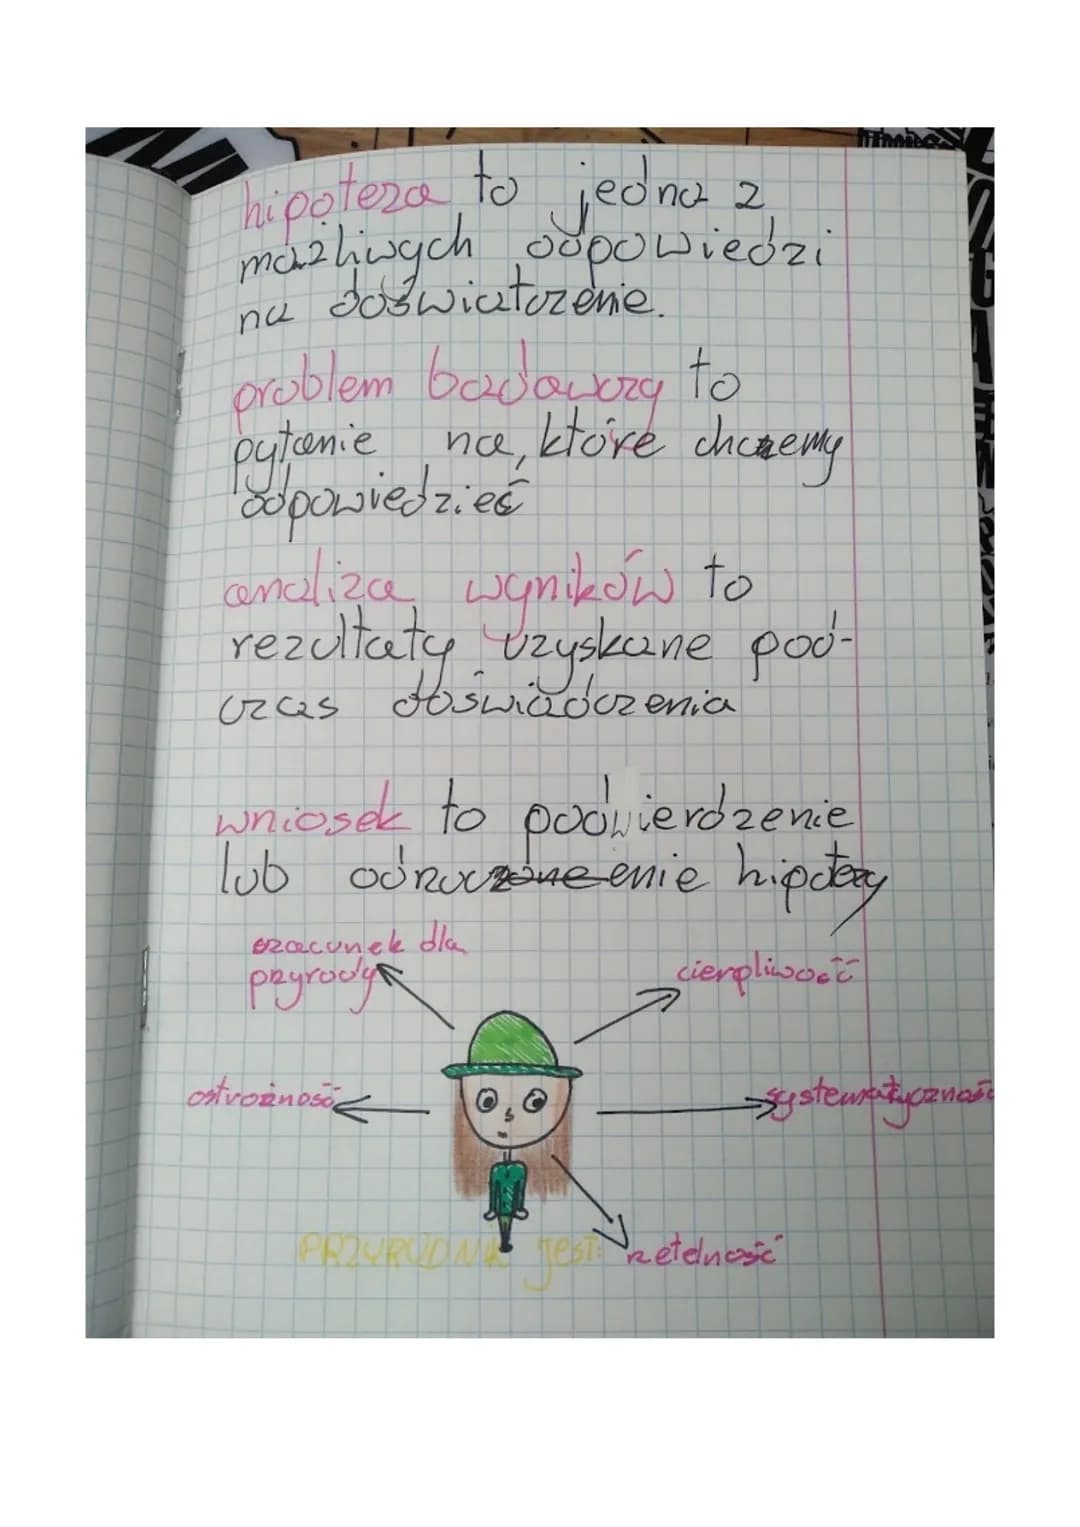 hipoteza to jedna z
możliwych odpowiedzi
na doświatczenie.
problem badawczy to
pytanie na, które chcemy
odpowiedzieć
analiza wyników to
rezultaty uzyskane pod-
czas doświadczenia
wniosek to podwierdzenie
lub odrzuczenie hipotezy
szacunek dla
przyrody
cierpliwość
ostrożność
systematyczność
PRZYRODNIK jest:
rzetelność